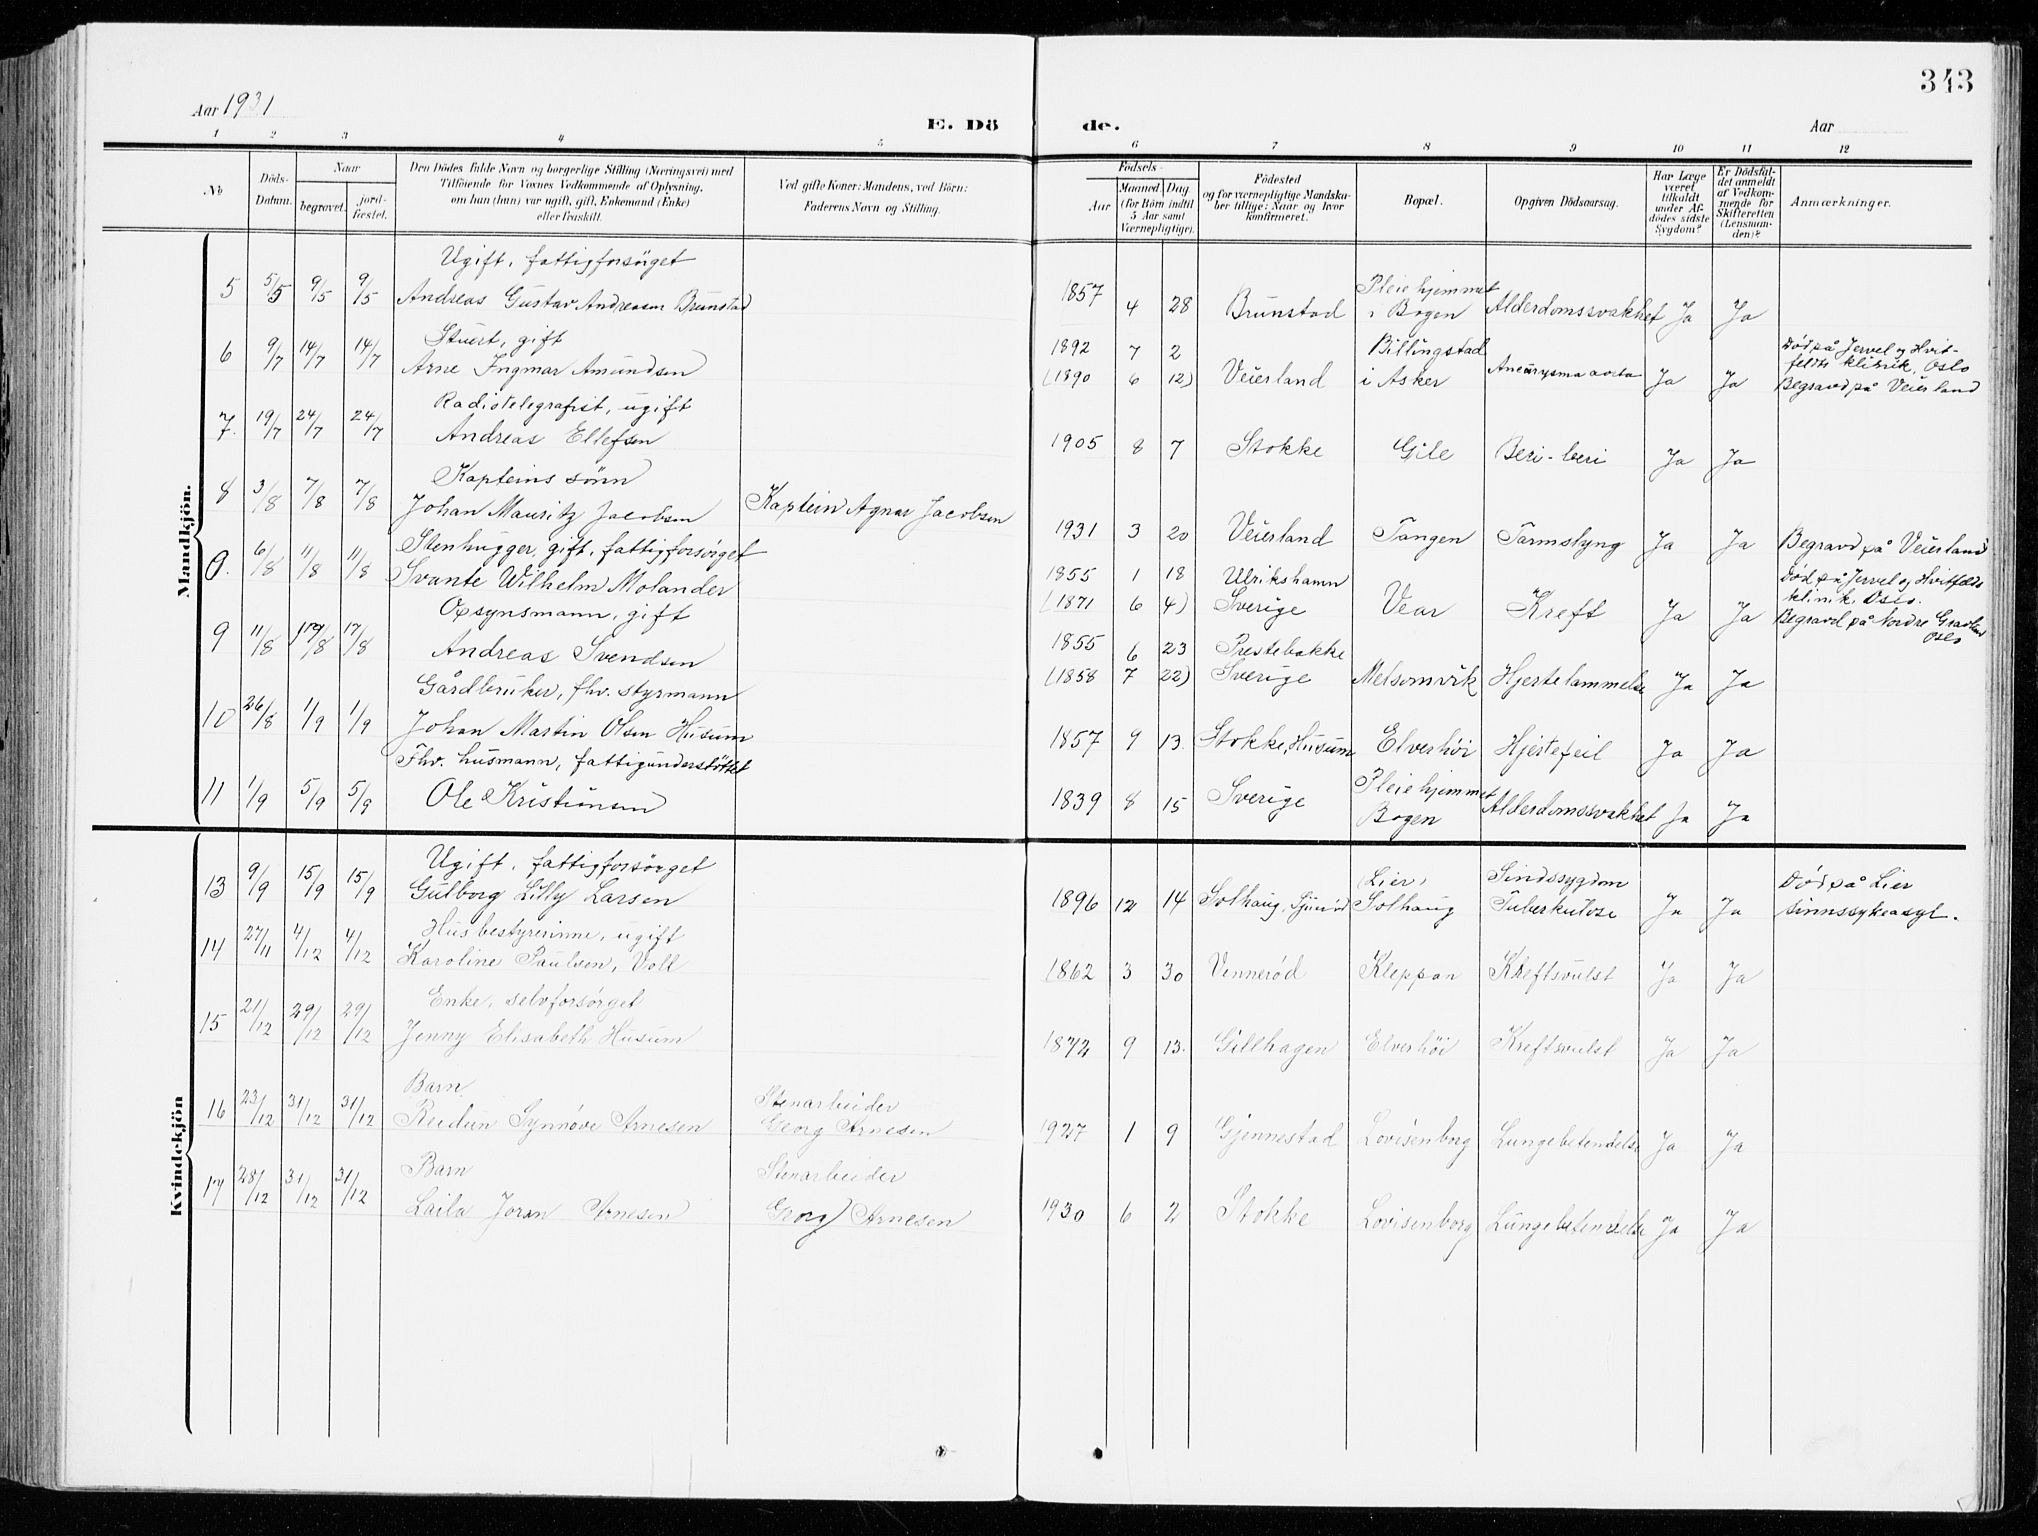 343
Aar 1931
E. Dö de.
Aar
1 2 3 4 5 6 7 8 9 10 11 12
No
Döds-Datum.
Naar
begravet.
jordfæstet.
Den Dödes fulde Navn og borgerlige Stilling (Næringsvei) med Tilföiende for Voxnes Vedkommende af Oplysning, om han (hun) var ugift, gift, Enkemand (Enke) eller fraskilt.
Ved gifte Koner: Mandens, ved Börn: Faderens Navn og Stilling.
Födsels-
Aar
Maaned. Dag
(for Börn indtil 5 Aar samt Værnepligtige).
Födested og for værnepligtige Mandskaber tillige: Naar og hvor konfirmeret.
Bopæl.
Opgiven Dödsaarsag.
Har Læge været tilkaldt under Afdödes sidste Sygdom?
Er Dödsfaldet anmeldt af Vedkommende for Skifteretten (Lensmanden)?
Anmærkninger.
Mandkjön.
Ugift, fattigforsörget
5 5/5 9/5 9/5 Andreas Gustav Andreasen Brunstad 1857 4 28 Brunstad Pleiehjemmet i Bogen Alderdomssvakhet Ja Ja
Stuert, gift
6 9/7 14/7 14/7 Arne Ingmar Amundsen 1892 7 2
(1890 6 12) Veierland Billingstad i Asker Aneurysma aorta Ja Ja Död på Jervel og Hvitfeldts klinik, Oslo Begravd på Veierland
Radiotelegrafist, ugift
7. 19/7 24/7 24/7 Andreas Ellefsen 1905 8 7 Stokke Gile Beri-beri Ja Ja
Kapteins sönn
8 3/8 7/8 7/8 Johan Mauritz Jacobsen Kaptein Agnar Jacobsen 1931 3 20 Veierland Tangen Tarmslyng Ja Ja Begravd på Veierland
Stenhugger, gift, fattigforsörget
0. 6/8 11/8 11/8 Svante Wilhelm Molander 1855 1 18
(1871 6 4) Ulrikshamn Sverige Vear Kreft Ja Ja Död på Jervel og Hvitfelds klinik, Oslo. Begravd på Nordre Gravlund Oslo
Opsynsmann, gift
9 11/8 17/8 17/8 Andreas Svendsen 1855 6 23
(1858 7 22) Prestebakke Sverige Melsomvik Hjertelammelse Ja Ja
Gårdbruker, fhv. styrmann
10 26/8 1/9 1/9 Johan Martin Olsen Husum 1857 9 13. Stokke, Husum Elverhöi Hjertefeil Ja Ja
Fhv. husmann, fattigunderstöttet
11 1/9 5/9 5/9 Ole Kristiansen 1839 8 15 Sverige Pleiehjemmet Bogen Alderdomssvakhet Ja Ja
Kvindekjön
Ugift, fattigforsörget
13 9/9 15/9 15/9 Gulborg Lilly Larsen 1896 12 14 Solhaug, (Lier) Solhaug Sindssygdom Tuberkulose Ja Ja Död på Lier sinnssykeasyl.
Husbestyrerinne, ugift
14 27/11 4/12 4/12 Karoline Paulsen, Voll 1862 3 30 Vennerød Kleppan Kreftsvulst Ja Ja
Enke, selvforsörget
15 21/12 29/12 29/12 Jenny Elisabeth Husum 1872 9 13. Gillhagen Elverhöi Kreftsvulst Ja Ja
Barn
16 23/12 31/12 31/12 Reidun Synnöve Arnesen Stenarbeider Georg Arnesen 1927 1 9 Gjennestad Lovisenborg Lungebetendelse Ja Ja
Barn
17 28/12 31/12 31/12 Laila Joran Arnesen Stenarbeider Georg Arnesen 1930 6 2 Stokke Lovisenborg Lungebetendelse Ja Ja